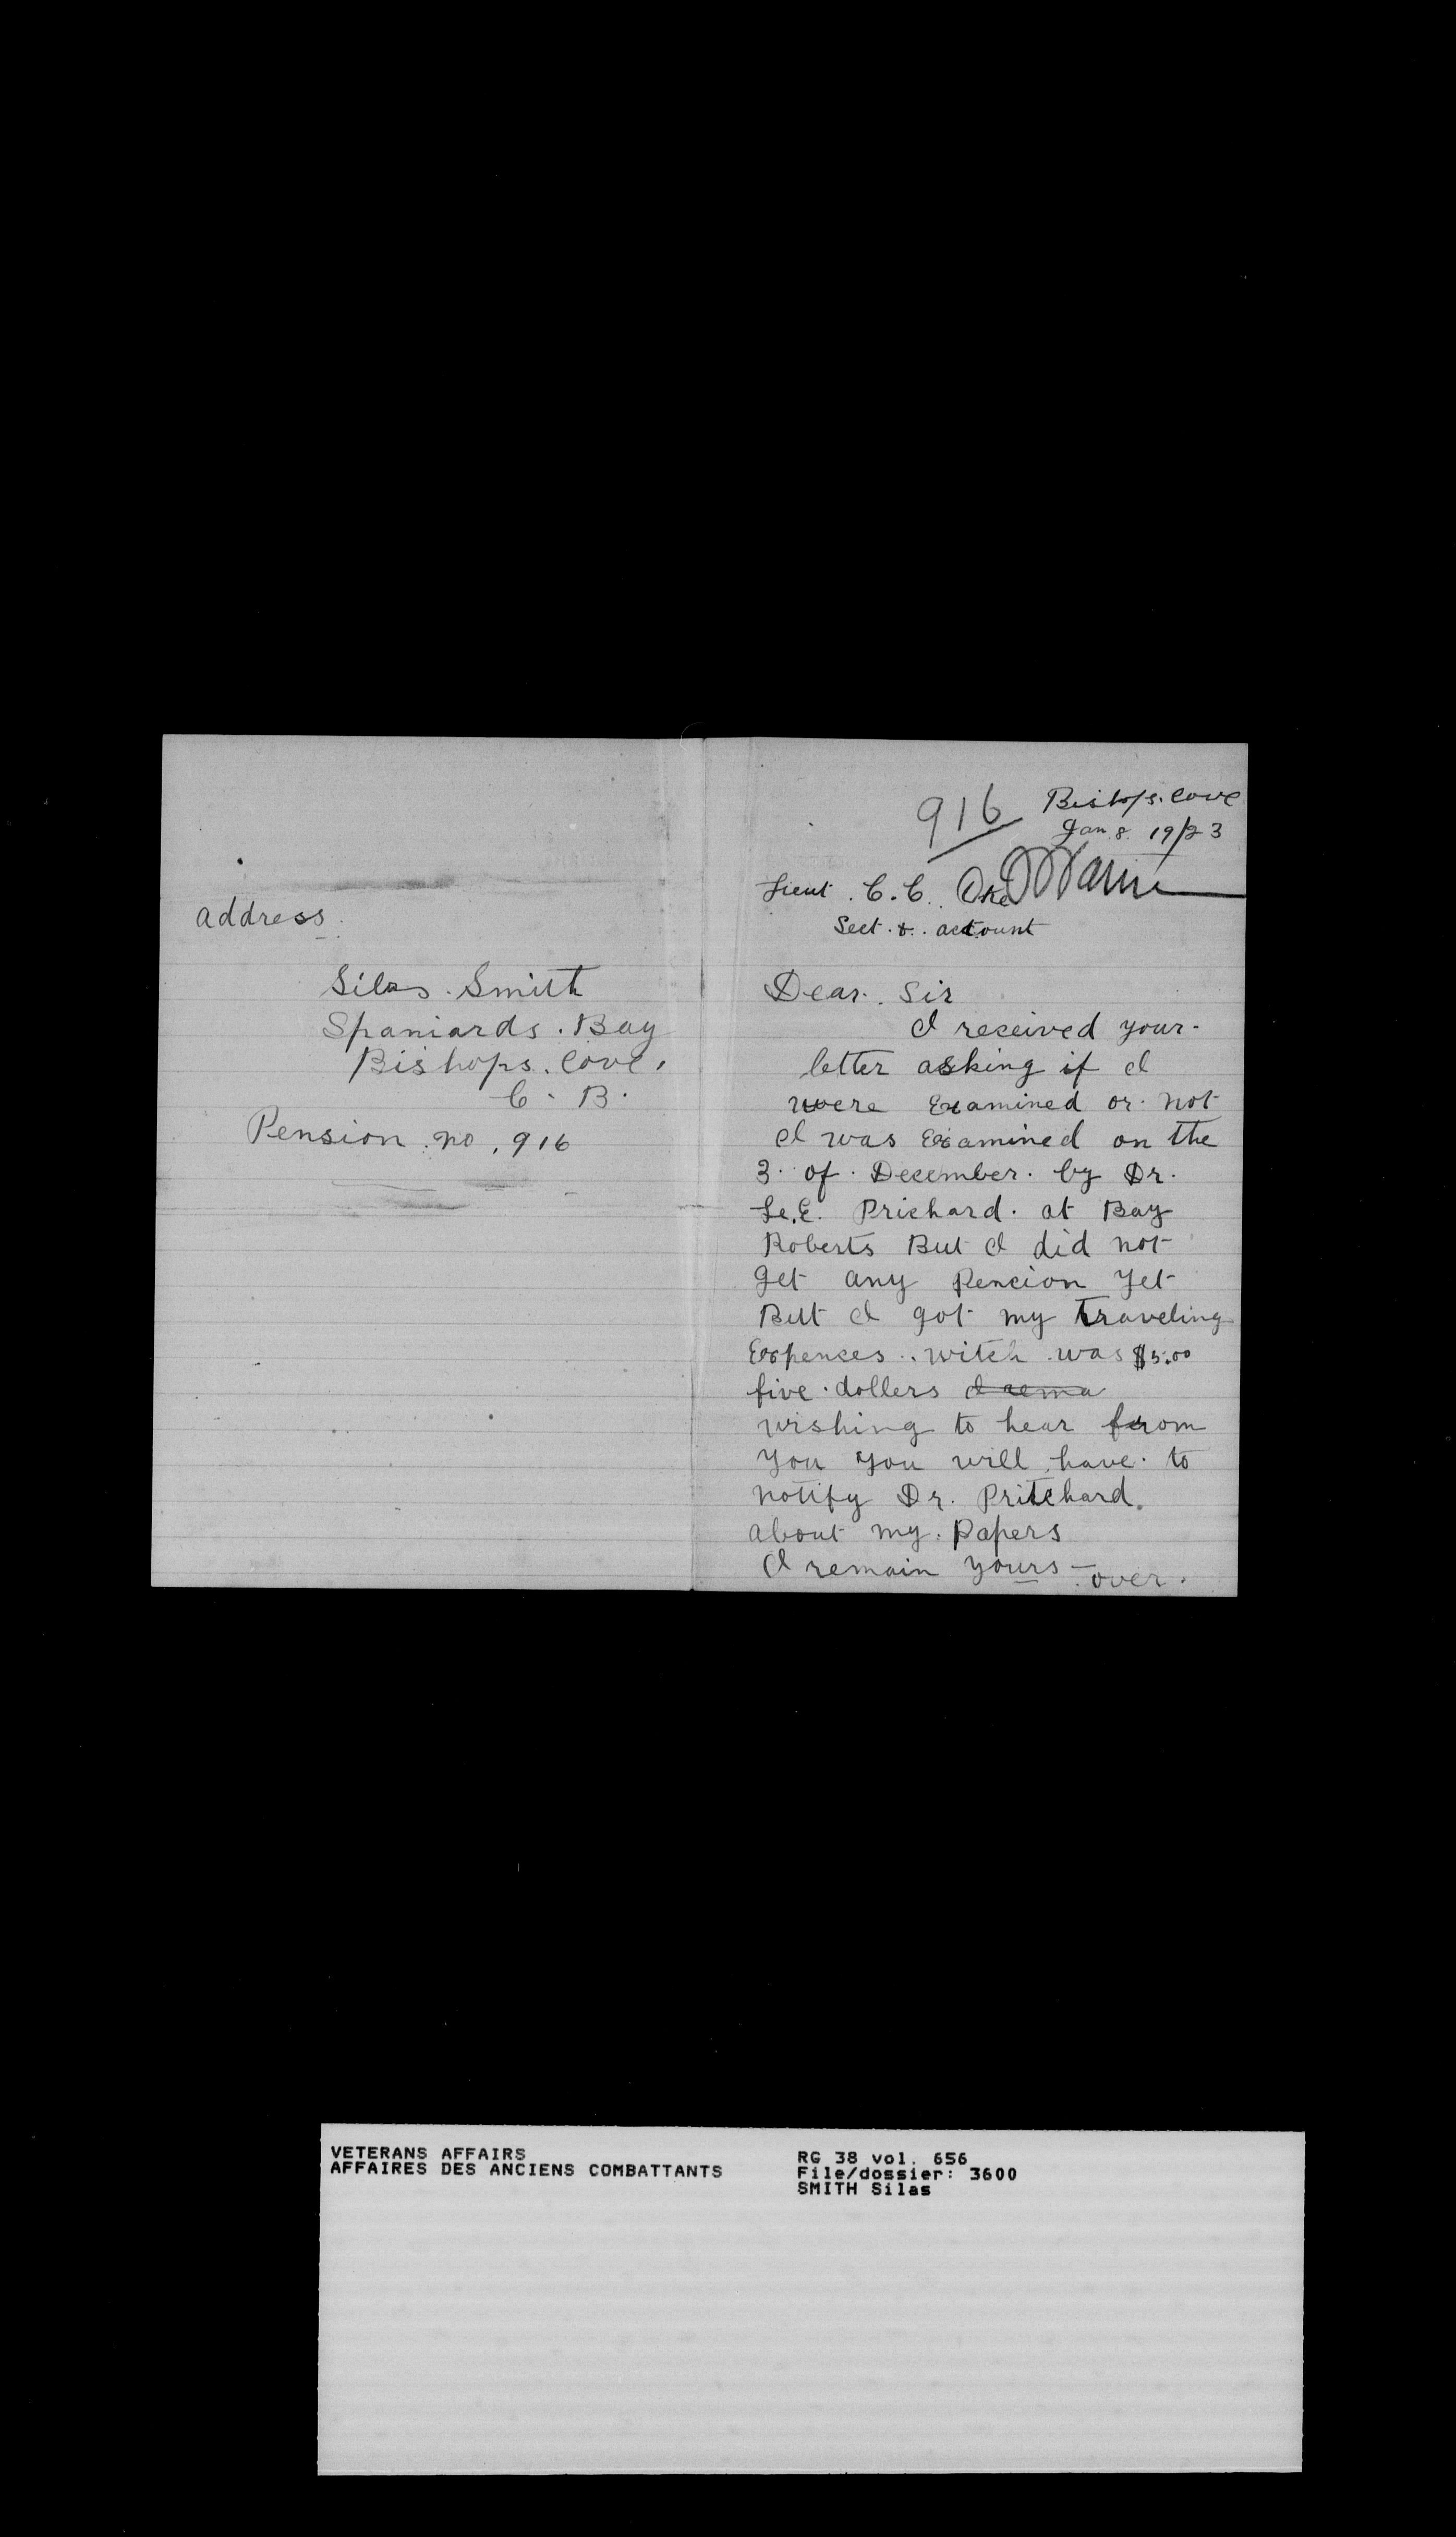 address.
Silas. Smith
Spaniards. Bay
Bishops. Cove.
C. B.
Pension. no. 916
916
Bishops. Cove
Jan 8. 19/23
Lieut. C. C. Oke
Sect. &. account
Dear. Sir
I received your.
letter asking if I
were Examined or. not
I was Examined on the
3. of. December. by Dr.
Le. E. Prichard. at Bay
Roberts But I did not
get any Pencion yet
But I got my traveling
Expences. witch. was $5.00
five. dollers I rema
wishing to hear from
you you will have. to
notify Dr. Pritchard.
about my. Papers
I remain yours — over.
VETERANS AFFAIRS
AFFAIRES DES ANCIENS COMBATTANTS
RG 38 vol. 656
File/dossier: 3600
SMITH Silas